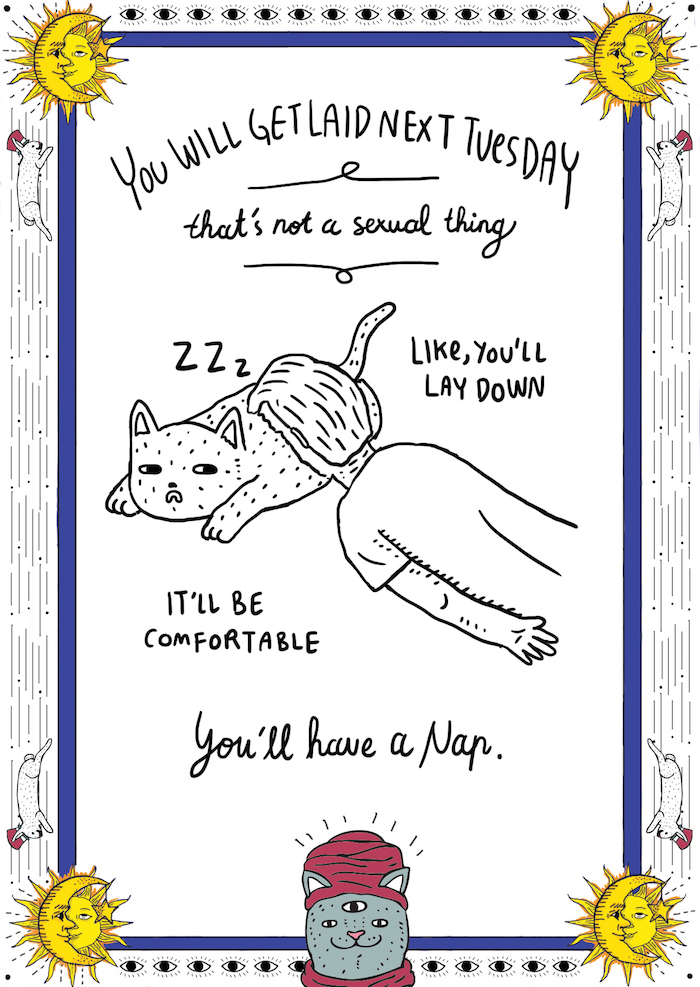 YOU WILL GET LAID NEXT TUESDAY
that's not a sexual thing
ZZz
LIKE, YOU'LL
LAY DOWN
IT'LL BE
COMFORTABLE
You'll have a Nap.